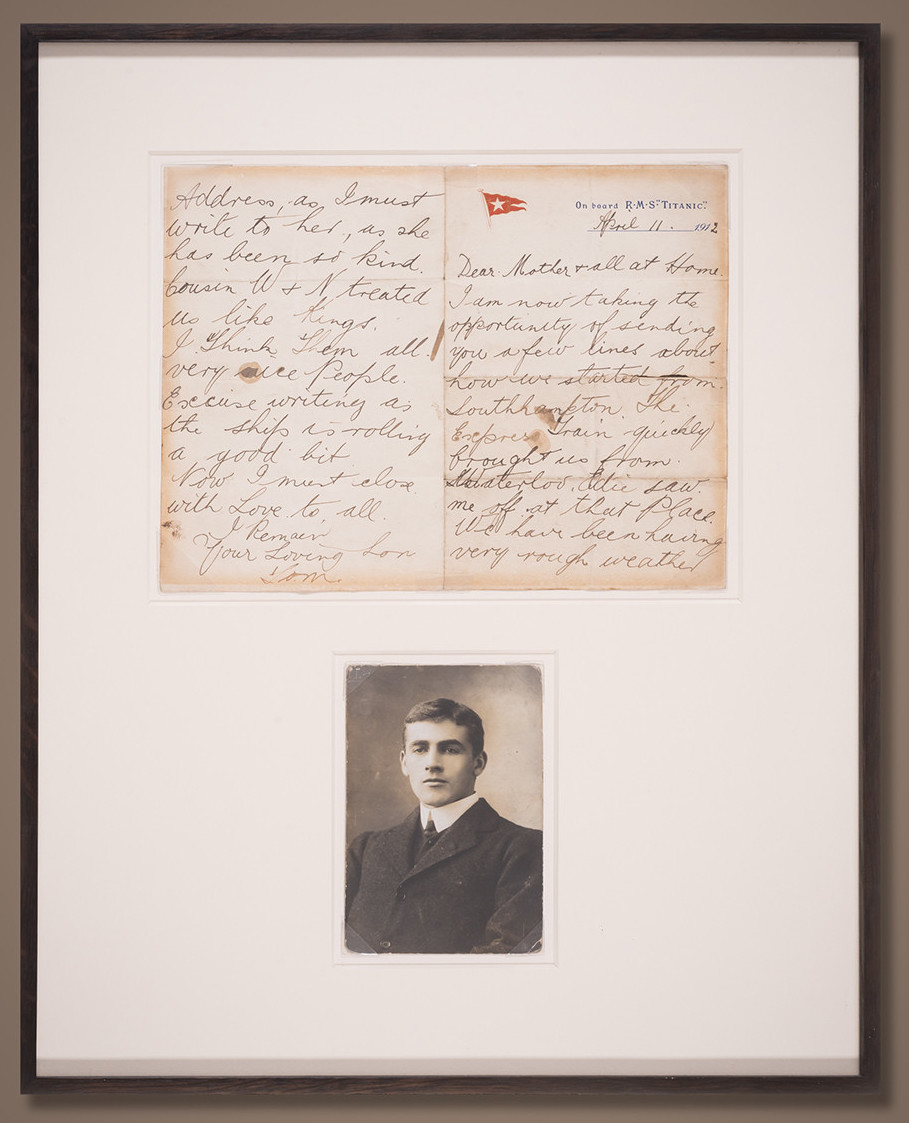 On board R·M·S· "TITANIC".
April 11. 1912
Dear Mother + all at Home.
I am now taking the
opportunity of sending
you a few lines about
how we started from.
Southhampton. The
Express Train quickly
brought us from.
Waterloo. saw.
me off at that Place.
We have been having
very rough weather
Address, as I must
write to her, as she
has been so kind.
Cousin W + N treated
us like Kings.
I Think Them all
very nice People.
Excuse writing as
the ship is rolling
a good bit
Now I must close
with Love to all.
I Remain
Your Loving Son
Tom.